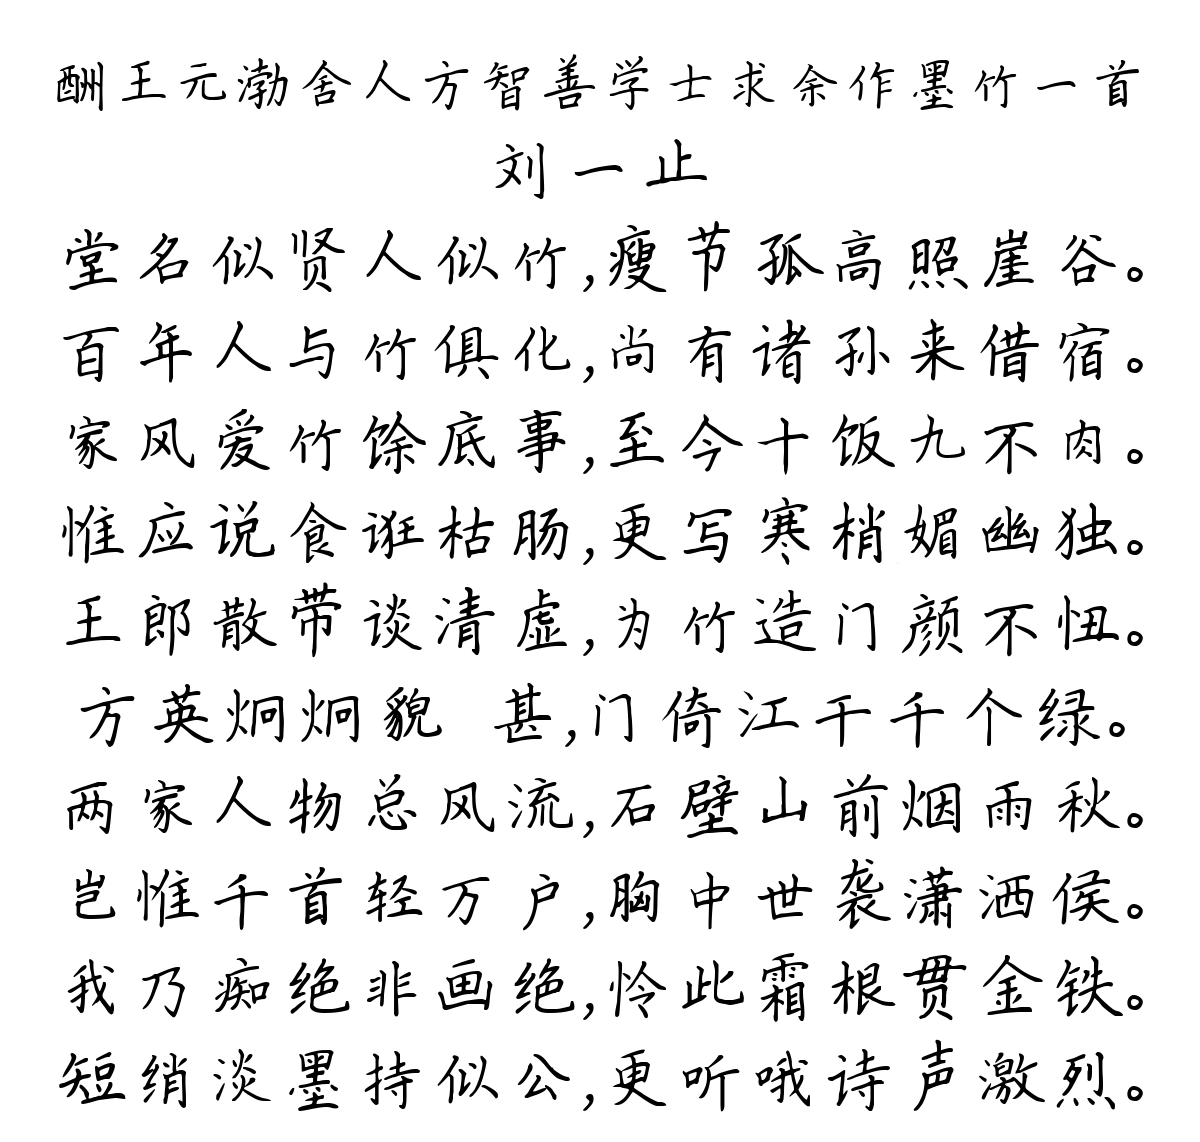 酬王元渤舍人方智善学士求余作墨竹一首
刘一止
堂名似贤人似竹,瘦节孤高照崖谷。
百年人与竹俱化,尚有诸孙来借宿。
家风爱竹馀底事,至今十饭九不肉。
惟应说食诳枯肠,更写寒梢媚幽独。
王郎散带谈清虚,为竹造门颜不忸。
方英炯炯貌 甚,门倚江干千个绿。
两家人物总风流,石壁山前烟雨秋。
岂惟千首轻万户,胸中世袭潇洒侯。
我乃痴绝非画绝,怜此霜根贯金铁。
短绡淡墨持似公,更听哦诗声激烈。